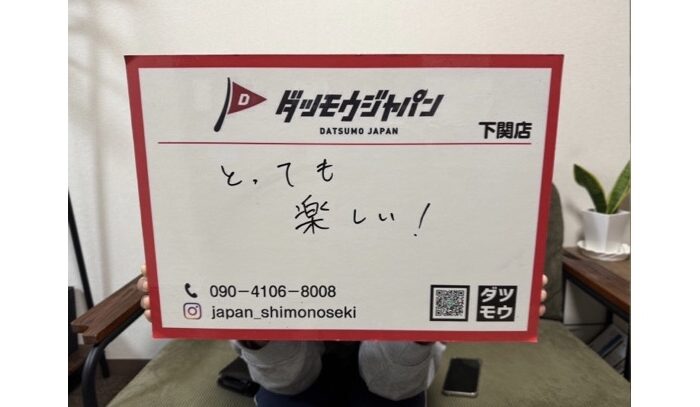 D
ダツモウジャパン
DATSUMO JAPAN
下関店
とっても
楽しい!
090-4106-8008
japan_shimonoseki
ダツ
モウ